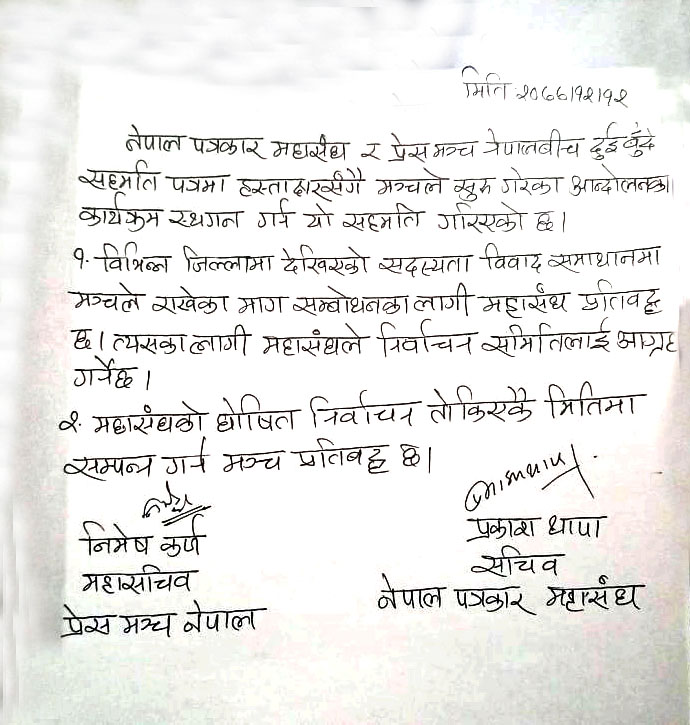 मिति २०७७।१२।१२
नेपाल पत्रकार महासंघ र प्रेस मञ्च नेपालबीच दुई बुँदे
सहमति पत्रमा हस्ताक्षरसँगै मञ्चले सुरु गरेका आन्दोलनका
कार्यक्रम स्थगन गर्न यो सहमति गरिएको छ।
१. विभिन्न जिल्लामा देखिएको सदस्यता विवाद समाधानमा
मञ्चले राखेका माग सम्बोधनका लागी महासंघ प्रतिबद्ध
छ। त्यसका लागी महासंघले निर्वाचन समितिलाई आग्रह
गर्नेछ।
२. महासंघको घोषित निर्वाचन तोकिएकै मितिमा
सम्पन्न गर्न मञ्च प्रतिबद्ध छ।
निमेष कर्ण
प्रकाश थापा
महासचिव
सचिव
प्रेस मञ्च नेपाल
नेपाल पत्रकार महासंघ